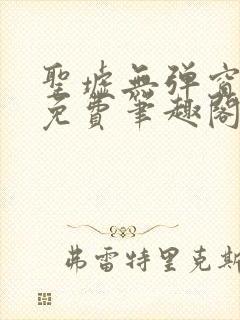 聖墟無彈窗
免費筆趣閣
弗雷特里克斯